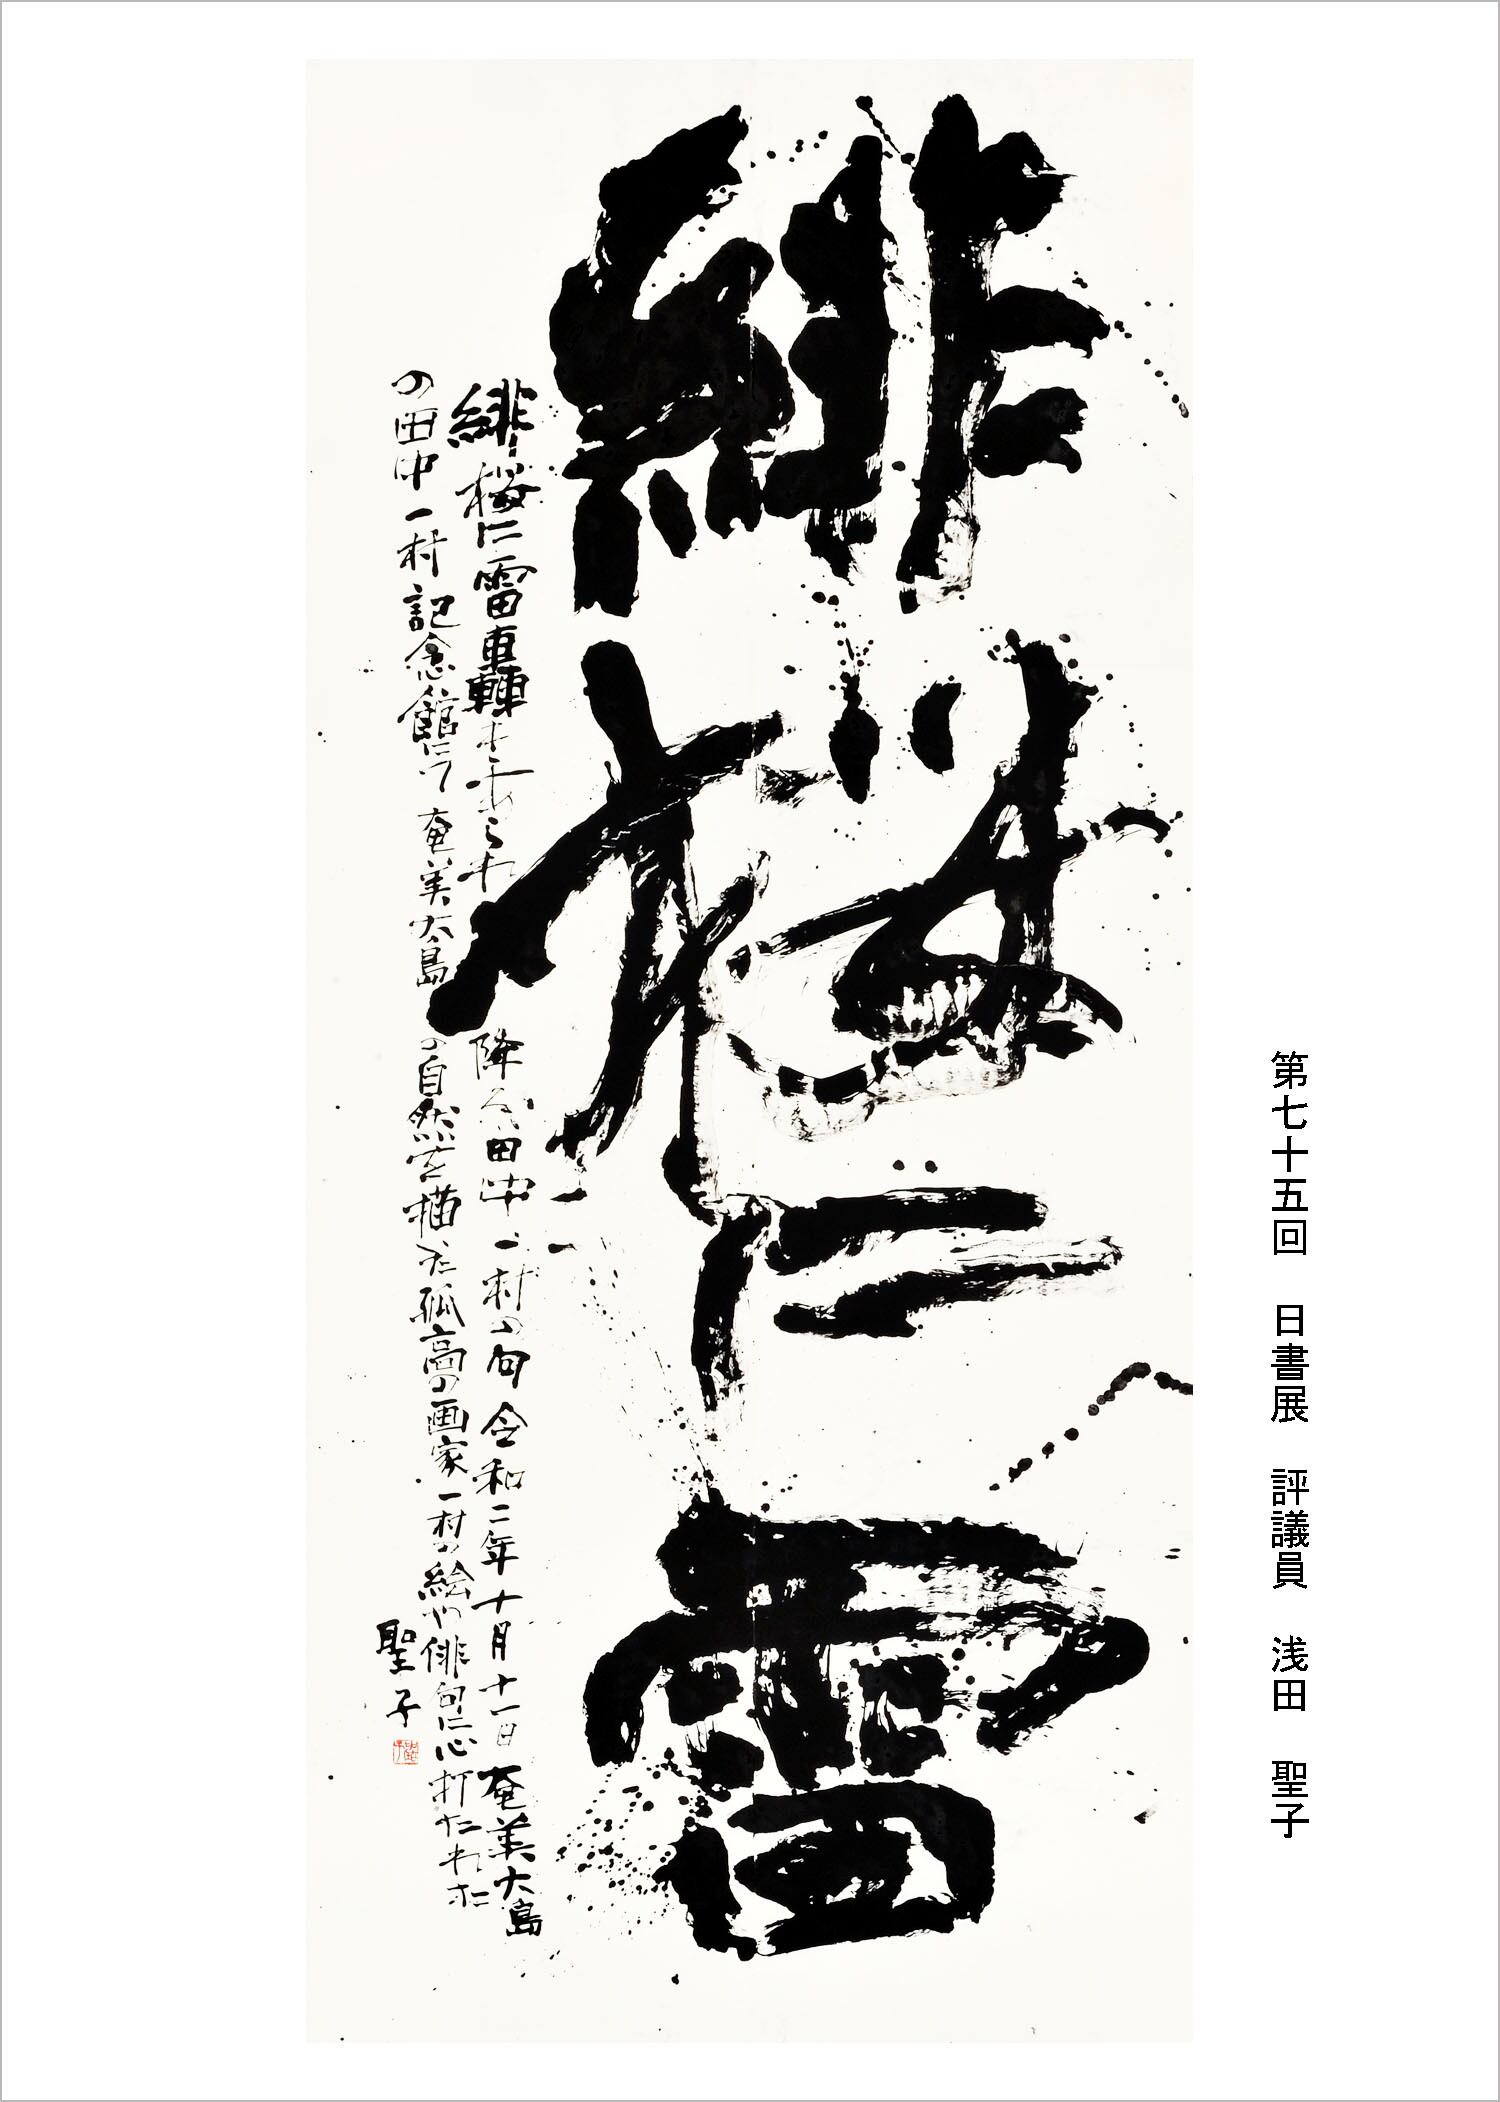 第七十五回 日書展 評議員 浅田 聖子
緋桜に雷
緋桜に雷轟きてあられ降る 田中一村の句 令和二年十月十一日 奄美大島
の田中一村記念館にて 奄美大島の自然を描いた孤高の画家一村の絵や俳句に心打たれた
聖子